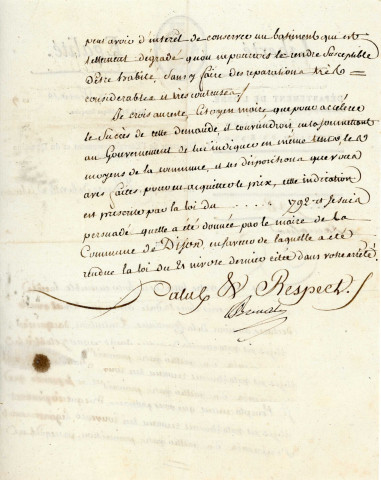 peut avoir d'interêt de conserver un batiment qui est
tellement dégradé qu'on ne pourroit le rendre susceptible
d'être habité, sans y faire des réparations très
considérables et très couteuses /
Je crois aureste, Citoyen maire, que pour accélérer
le succès de cette demande, il conviendroit, en la soumettant
au Gouvernement de lui indiquer en même tems, les
moyens de la commune, et les dispositions que vous
avez faites pour en acquitter le prix, cette indication
est prescrite par la loi du . . . . . . 1792. et je suis
persuadé qu'elle a été donnée par le maire de la
Commune de Dijon, en faveur de laquelle a été
rendue la loi du 21 nivose dernier citée dans votre arrêté.
Salut & Respect. /